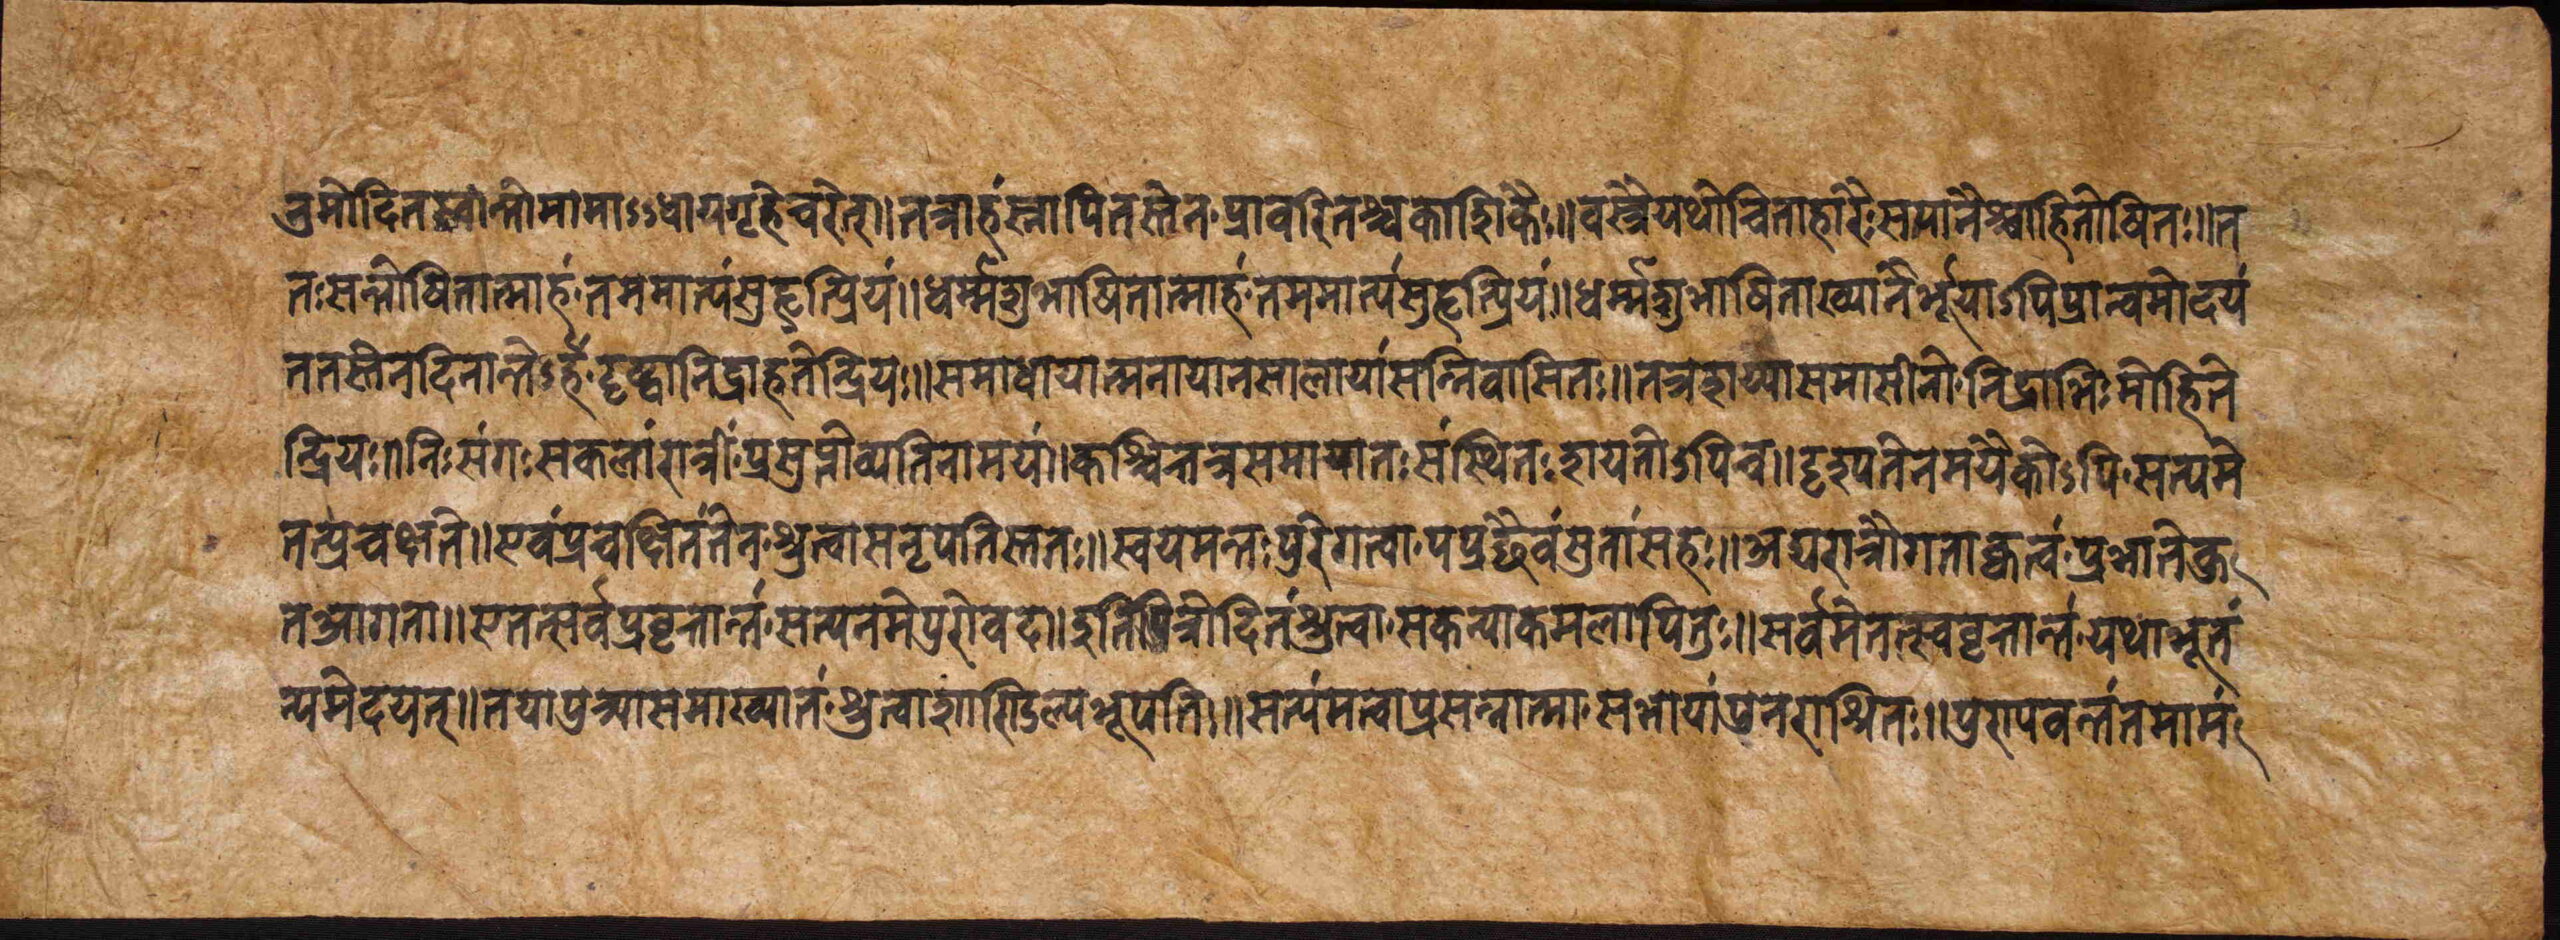 नुमोदितस्वान्मीमामाऽऽधायगृहेचरेत्॥तत्राहंस्नापितस्तेनप्रावरितश्चकाशिकैः॥वस्त्रैर्यथोचिताहारैःसपानैश्चाहितोषितः॥त
तःसन्तोषितात्माहंतममात्यंसुहृत्प्रियं॥धर्म्मशुभाषितात्माहंतममात्यंसुहृत्प्रियं॥धर्म्मशुभाषिताख्यानैर्भूयाऽपिप्रात्वमोदयं
ततस्तेनदिनान्तेऽहंदृष्ट्वानिद्राहतेन्द्रियः॥समाधायात्मनायानसालायांसन्निवासितः॥तत्रशय्यासमासीनोनिद्राभिःमोहिते
न्द्रियः॥निःसंगःसकलांरात्रींप्रसुप्तोव्यतिनामयं॥कश्चित्तत्रसमायातःसंस्थितःशयतोऽपिच॥दृश्यतेनमयैकोऽपिसत्यमे
तत्प्रचक्षते॥एवंप्रचक्षितंतेनश्रुत्वासनृपतिस्ततः॥स्वयमन्तःपुरेगत्वापप्रछैवंसुतांसह॥अद्यरात्रौगताक्वत्वंप्रभातेकु
तआगता॥एतत्सर्वप्रवृत्तान्तंसत्यनमेपुरोवद॥इतिपित्रोदितंश्रुत्वासकन्याकमलापितुः॥सर्वमेतत्स्ववृत्तान्तंयथाभूतं
न्यमेदयत्॥तयापुत्र्यासमाख्यातंश्रुत्वाशाण्डिल्यभूपति॥सत्यंमत्वाप्रसन्नात्मासभायांपुनराश्रितः॥पुरापवर्न्ततमामं